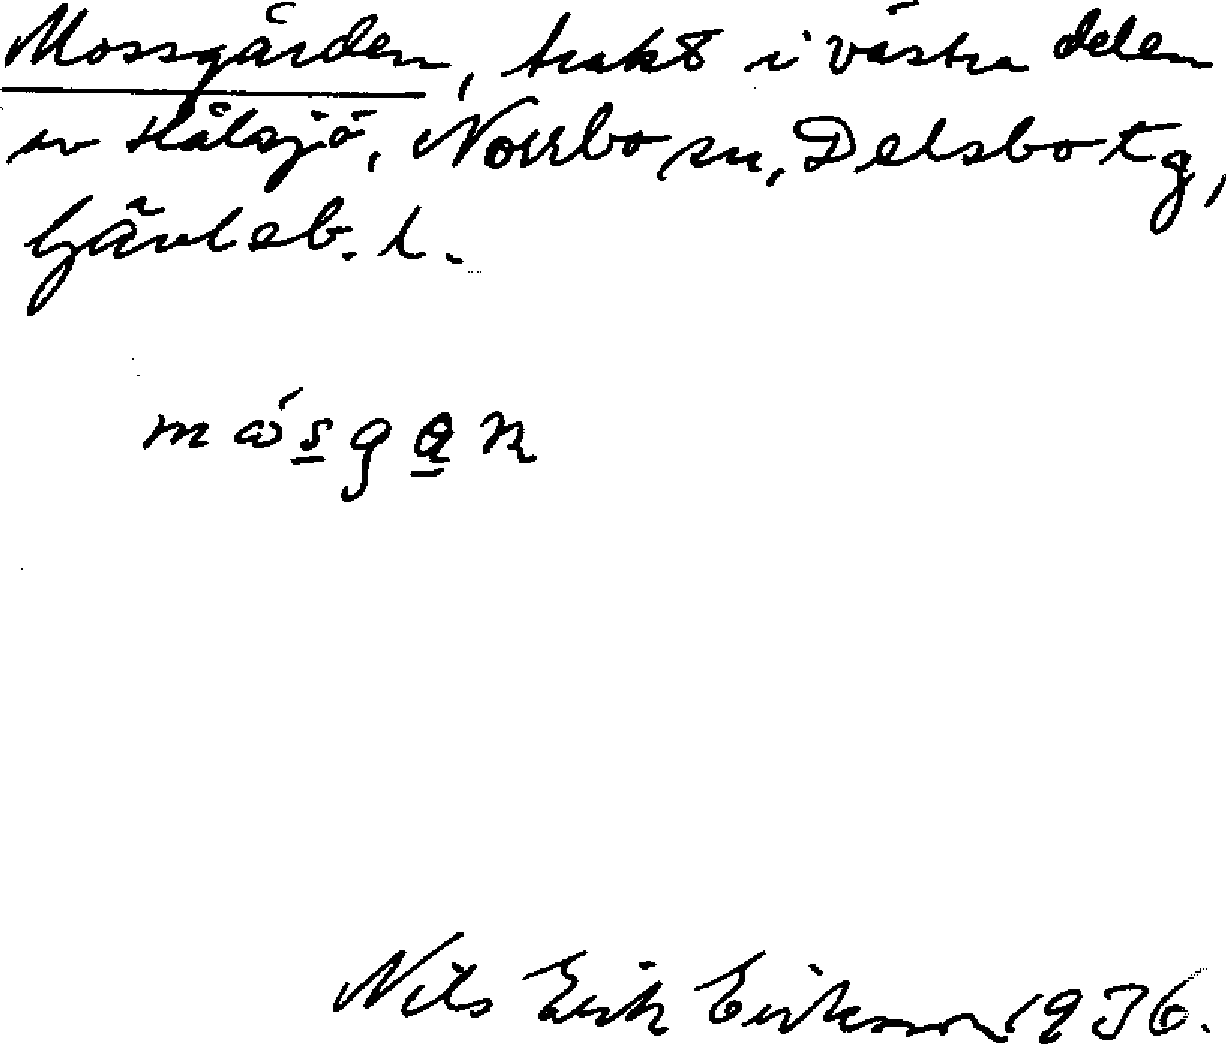 Mossgården, trakt i västra delen
av Hålsjö, Norrbo sn, Delsbo tg,
Gävleb. l.
Nils Erik Eriksson 1936.